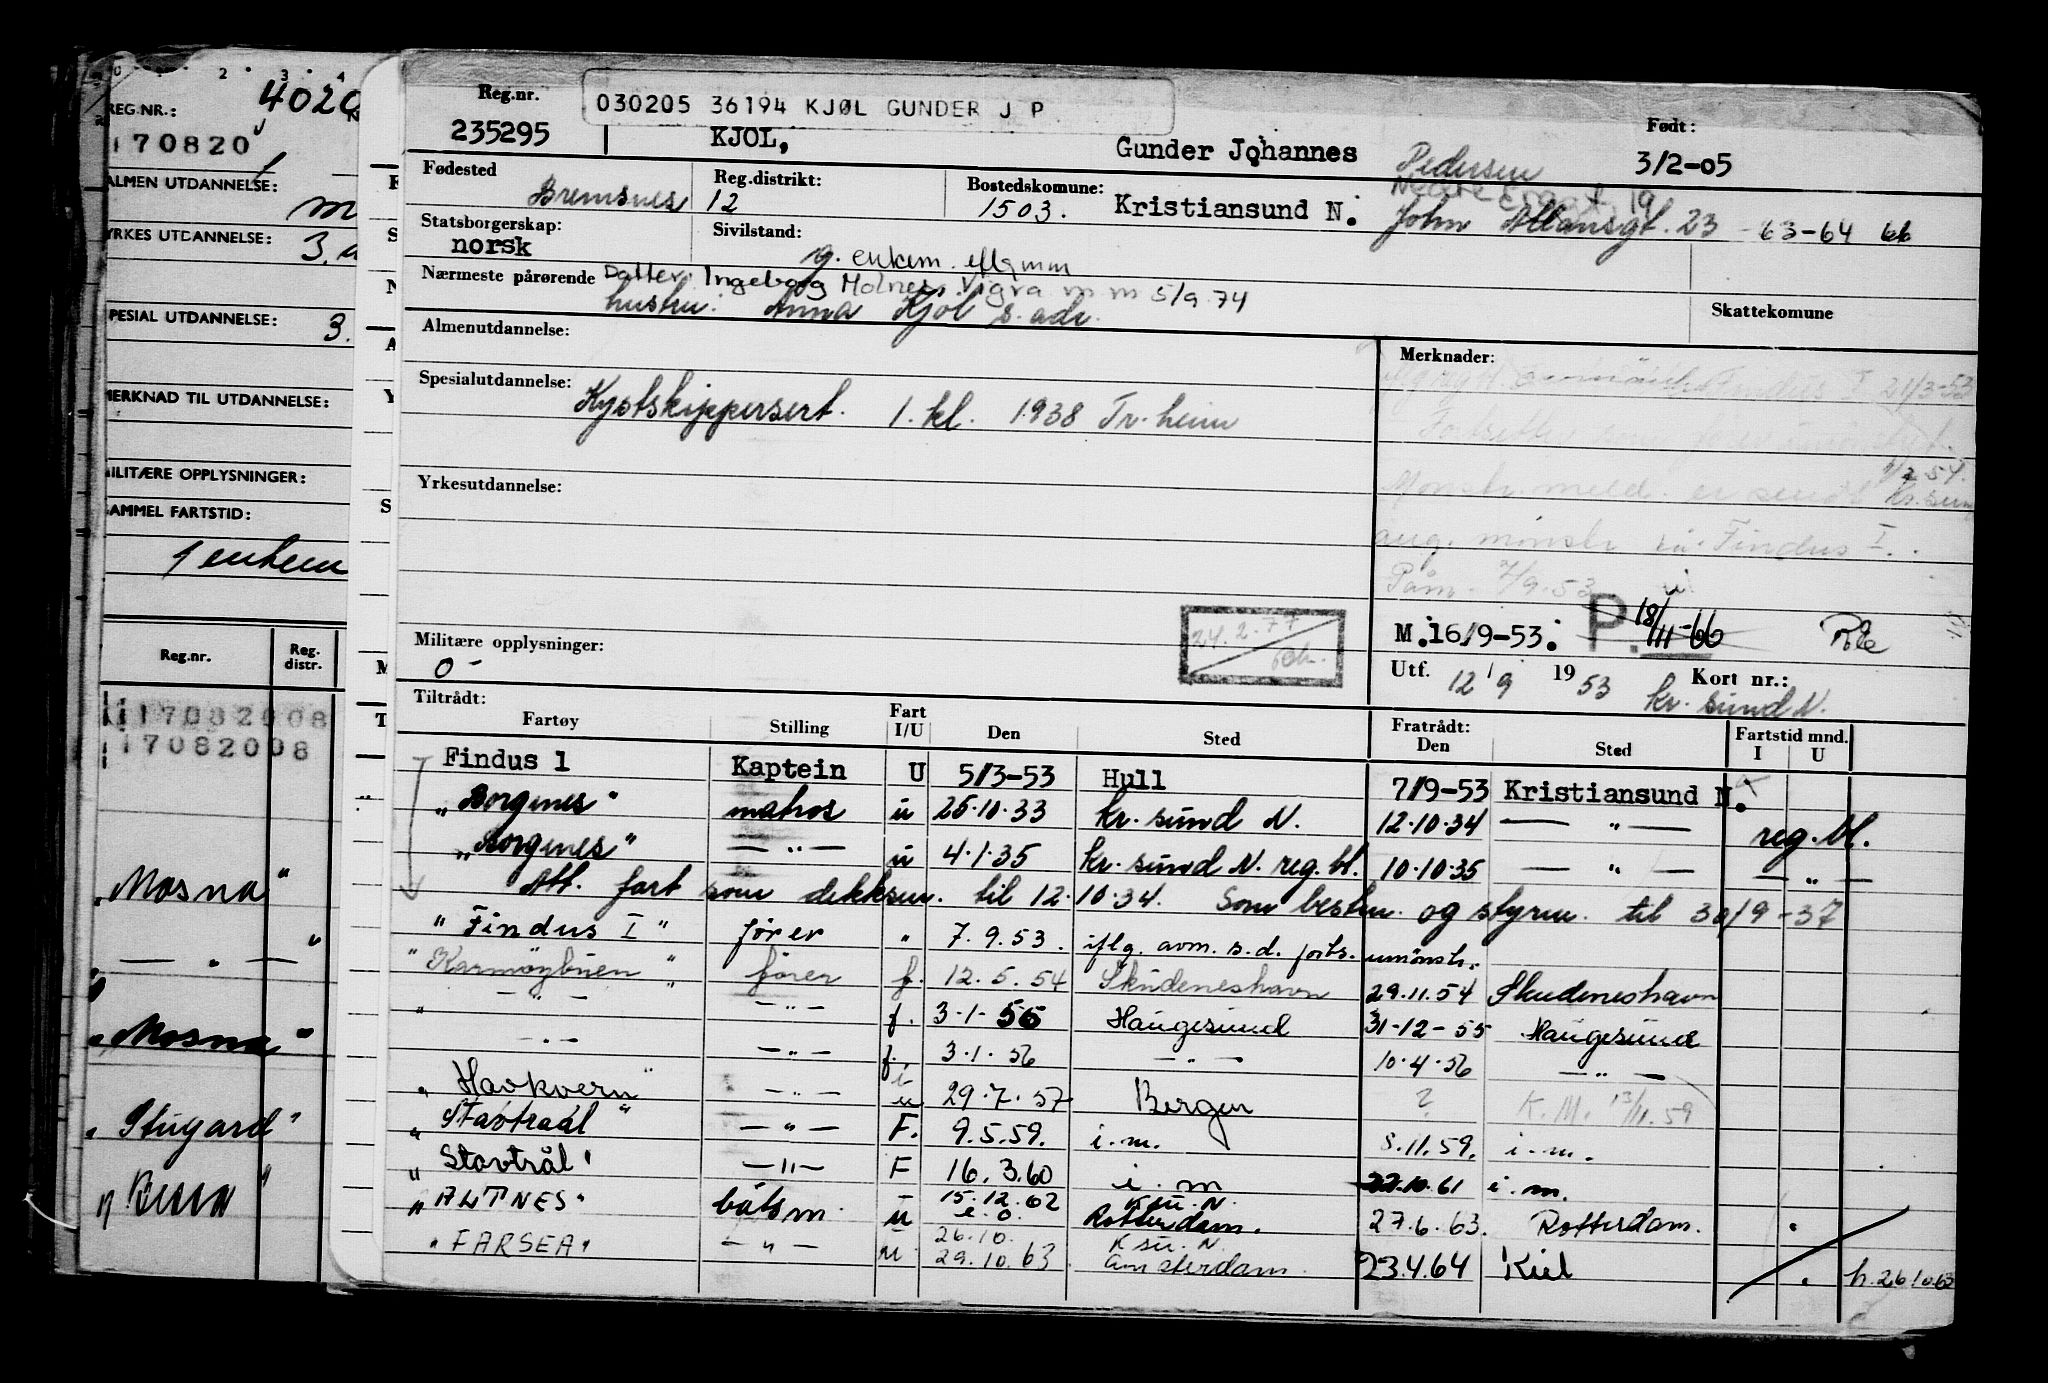 0 2 3 4
REG.NR.:
4020
170820
ALMEN UTDANNELSE:
m
YRKES UTDANNELSE:
3.
SPESIAL UTDANNELSE:
3.
MERKNAD TIL UTDANNELSE:
MILITÆRE OPPLYSNINGER:
SAMMEL FARTSTID:
Reg.nr. Reg. distr.
17082008
17082008
"Mosna"
— " —
"Mosna"
"Stugard"
Reg.nr.
235295
030205 36194 KJØL GUNDER J P
KJOL, Gunder Johannes Pedersen
Født:
3/2-05
Fødested
Bremsnes
Reg.distrikt:
12
Bostedskomune:
1503. Kristiansund N.
19
John Allansgt. 23 63-64 66
Statsborgerskap:
norsk
Sivilstand:
g. enkem. eflg mm
Nærmeste pårørende
Datter: Ingeborg Molnes, Vigra m m 5/9.74
hustru: Anna Kjøl s. adr.
Skattekomune
Almenutdannelse:
Merknader:
Findus I 21/3-53
Spesialutdannelse:
Kystskippersert. 1. kl. 1938 Tr.heim
1/2 54.
Mønstr. meld. er sendt Kr.sund
Yrkesutdannelse:
ang. mønstr. Findus I.
Påm. 7/9.53
Militære opplysninger:
0-
24.2.77
M. 16/9-53. P. 18/11-66
Utf. 12/9 1953 Kort nr.:
kr. sund N.
Tiltrådt:
Fartøy Stilling Fart I/U Den Sted Fratrådt: Den Sted Fartstid mnd. I U
Findus 1 Kaptein U 5/3-53 Hull 7/9-53 Kristiansund N.
"Borgenes" matros u 25.10.33 kr. sund N. 12.10.34 — " — reg. bl.
"Borgenes" — " — u 4.1.35 kr. sund N. reg. bl. 10.10.35 — " — — " —
Att. fart som dekksm. til 12.10.34. Som bestm. og styrm. til 30/9-37
"Findus I" fører " 7.9.53. iflg. avm. s.d. forts. umønstr.
"Karmøybuen" fører f. 12.5.54 Skudeneshavn 29.11.54 Skudeneshavn
" — " — — " — f. 3-1-55 Haugesund 31-12-55 Haugesund
— " — — " — f. 3.1.56 — " — 10.4.56 — " —
"Havkvern" — " — i u 29.7.57 Bergen ? K.M. 13/11.59
"Stavtraal" — " — F. 9.5.59. i.m. 8.11.59. i.m.
"Stavtrål" — " — F 16.3.60 i.m 22.10.61 i.m.
"ALTNES" båtsm. u 15.12.62 e.o. Ksu. N. Rotterdam. 27.6.63. Rotterdam.
"FARSEA" — " — u 26.10. 29.10.63 Ksu. N. Amsterdam. 23.4.64 Kiel h. 26.10.63